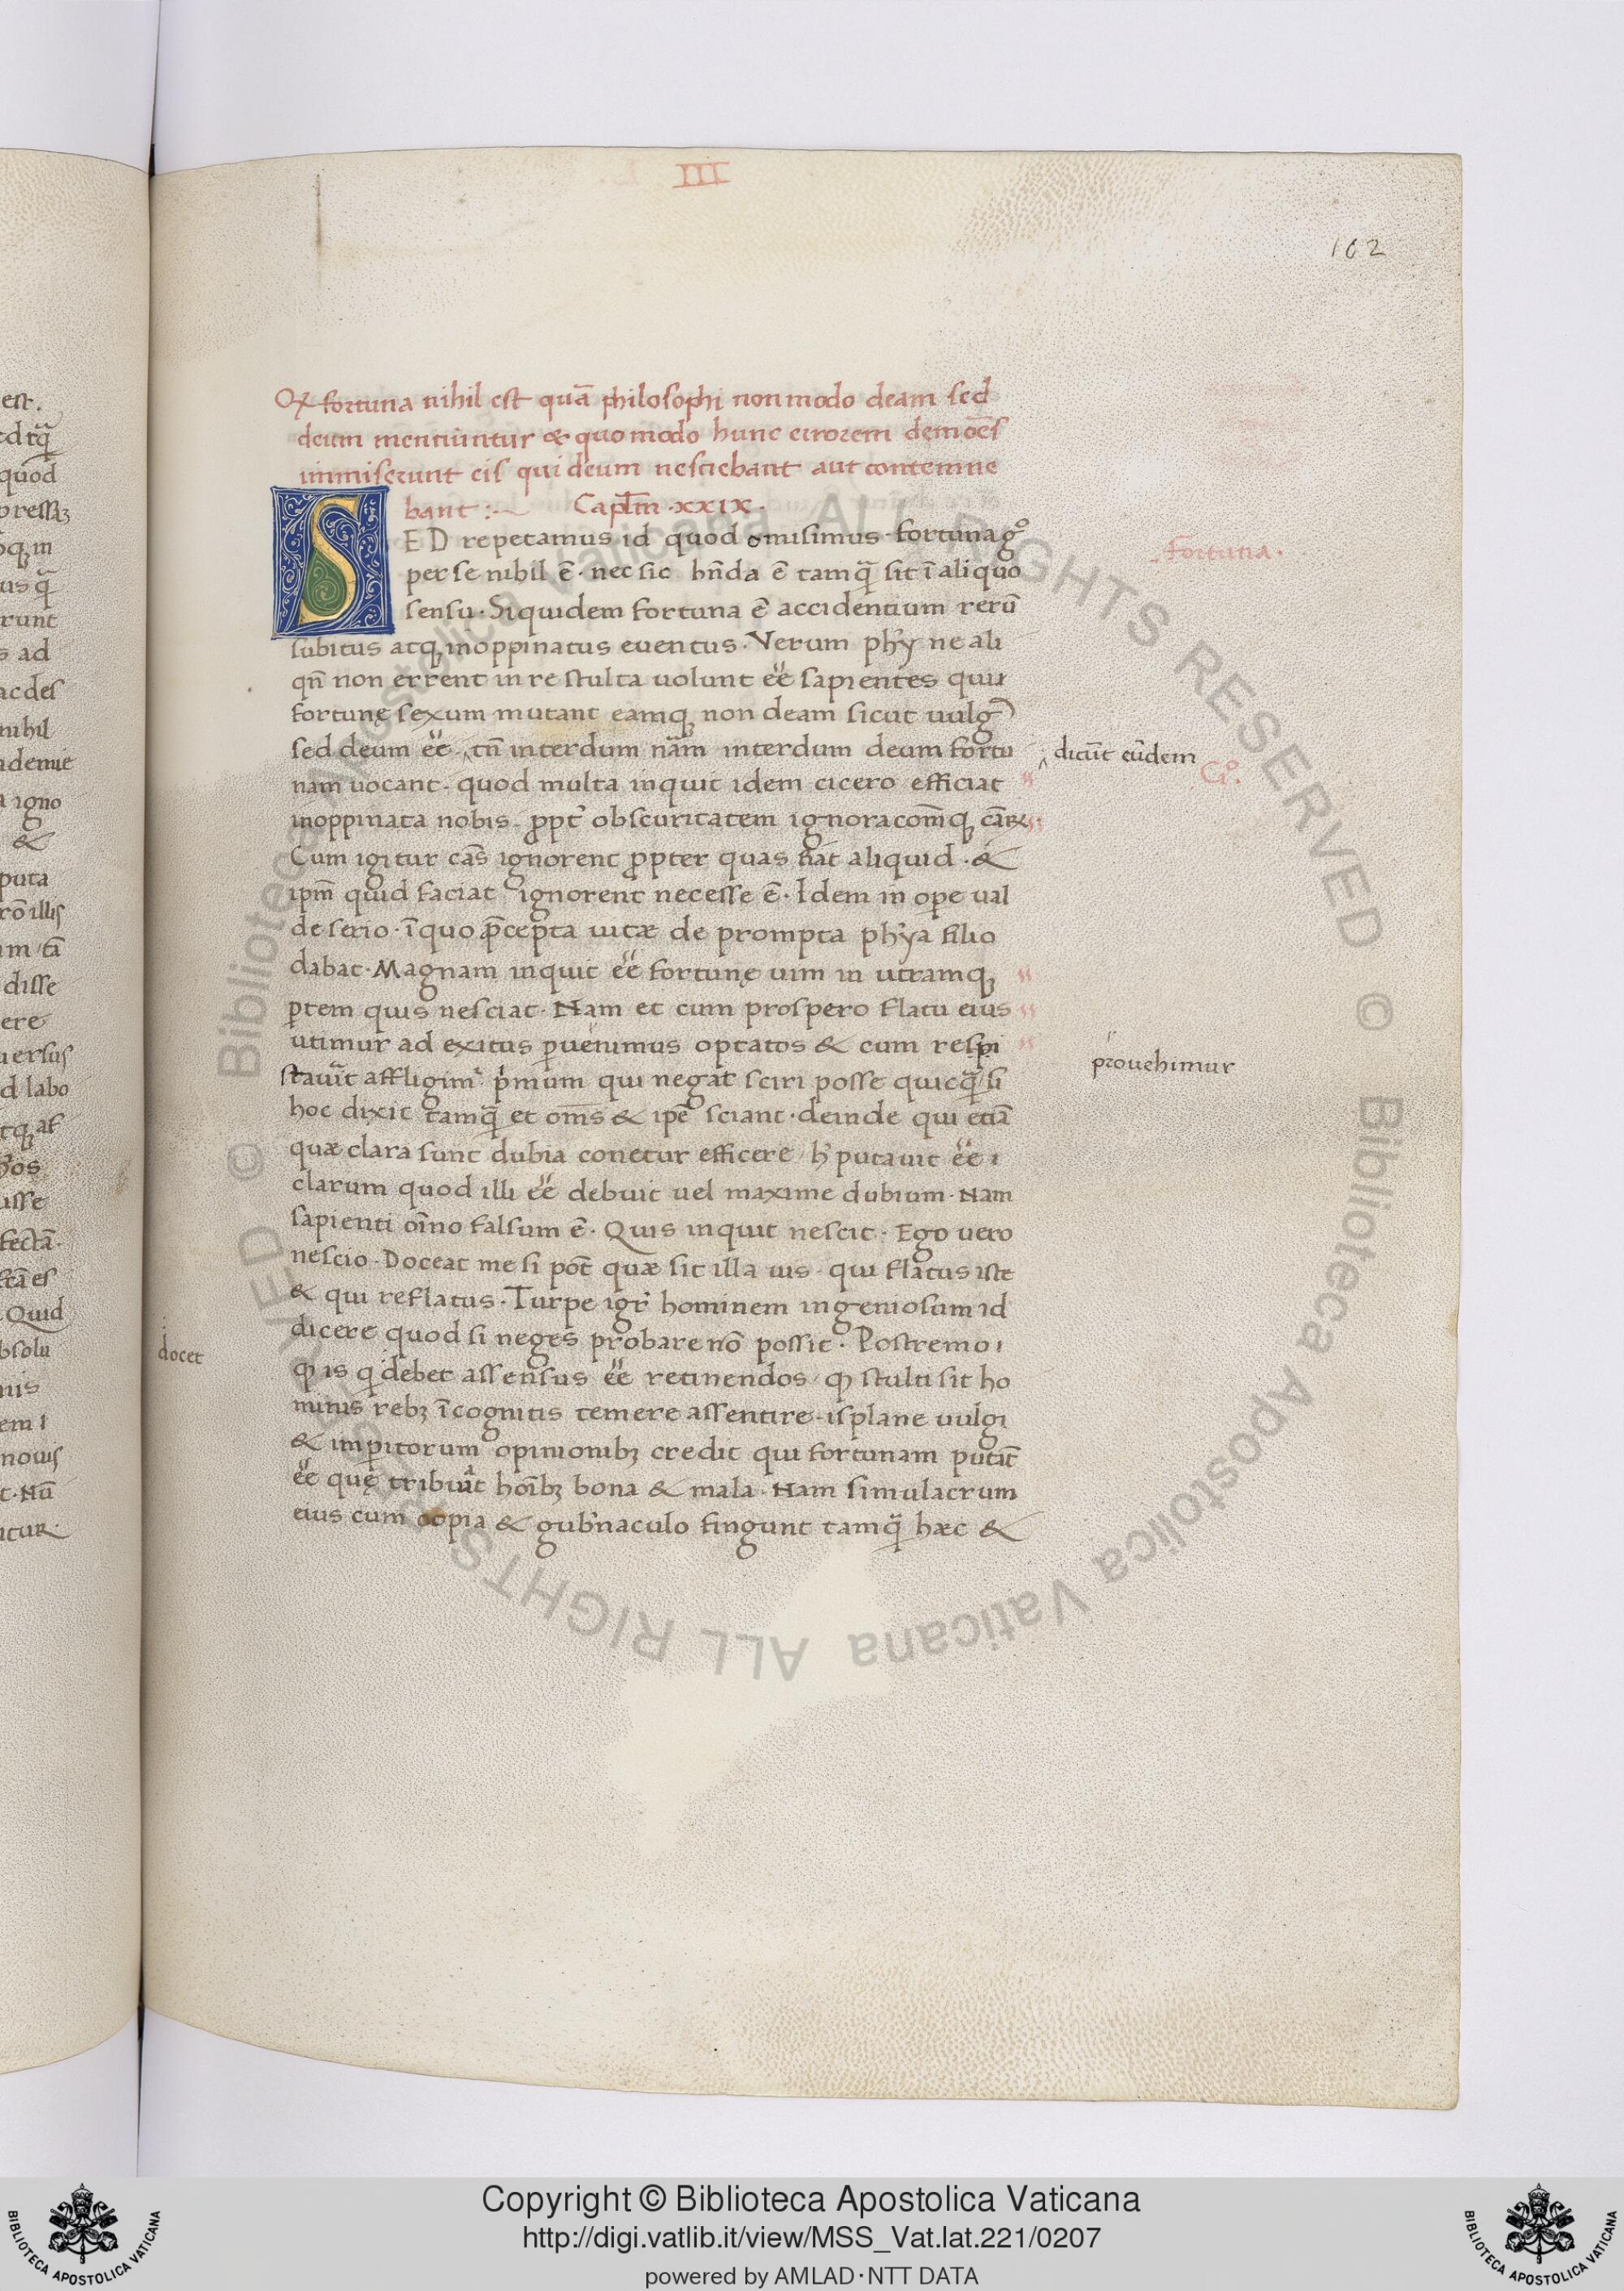 III
102
Qꝫ fortuna nihil est quā philosophi non modo deam sed
deum mentiuntur & quomodo hunc errorem demoēs
immiserunt eis qui deum nesciebant aut contemne
bant :~ Capl̄m .xxix.
SED repetamus id quod omisimus. fortuna gͦ
per se nihil ē. nec sic hn̄da ē tamq̄ sit ī aliquo
sensu. Siquidem fortuna ē accidentium rerū
subitus atqꝫ inoppinatus euentus. Verum phỹ ne ali
qn̄ non errent in re stulta uolunt eē sapientes qui
fortunę sexum mutant eamqꝫ non deam sicut uulgꝰ
sed deum eē. ‸ tn̄ interdum nām interdum deum fortu
nam uocant. quod multa inquit idem cicero efficiat
inoppinata nobis. ꝓpt̄ obscuritatem ignoracōmqꝫ cāꝝ.
Cum igitur cās ignorent ꝓpter quas fiāt aliquid. &
ipm̄ quid faciat ignorent necesse ē. Idem in oꝑe ual
de serio. ī quo p̄cepta uitæ de prompta phỹa filio
dabat. Magnam inquit eē fortunę uim in utramqꝫ
ꝑtem quis nesciat. Nam et cum prospero flatu eius
utimur ad exitus ꝑuenimus optatos & cum respi
stauīt affligimᷣ. pͥmum qui negat sciri posse quicq̄ / si
hoc dixit tamq̄ et om̄s & ipē sciant. deinde qui etiā
quæ clara sunt dubia conetur efficere / hͦ putauit eē ı
clarum quod illi eē debuit uel maxime dubium. Nam
sapienti oīno falsum ē. Quis inquit nescit. Ego uero
nescio. Doceat me si pōt quæ sit illa uis. qui flatus iste
& qui reflatus. Turpe igr̄ hominem ingeniosum id
dicere quod si neges probare nō possit. Postremo ı
qꝫ is qͥ debet assensus eē retinendos / qꝫ stulti sit ho
minis rebꝫ īcognitis temere assentire. is plane uulgi
& imꝑitorum opinionibꝫ credit qui fortunam putāt
eē quę tribuāt hoībꝫ bona & mala. Nam simulacrum
eius cum copia & gub̄naculo fingunt tamq̄ hæc &
Fortuna.
‸ dicūt eūdem
Ciͦ.
prouehimur
docet
Copyright © Biblioteca Apostolica Vaticana
http://digi.vatlib.it/view/MSS_Vat.lat.221/0207
powered by AMLAD·NTT DATA
BIBLIOTECA APOSTOLICA VATICANA
BIBLIOTECA APOSTOLICA VATICANA
© Biblioteca Apostolica Vaticana ALL RIGHTS RESERVED © Biblioteca Apostolica Vaticana ALL RIGHTS RESERVED